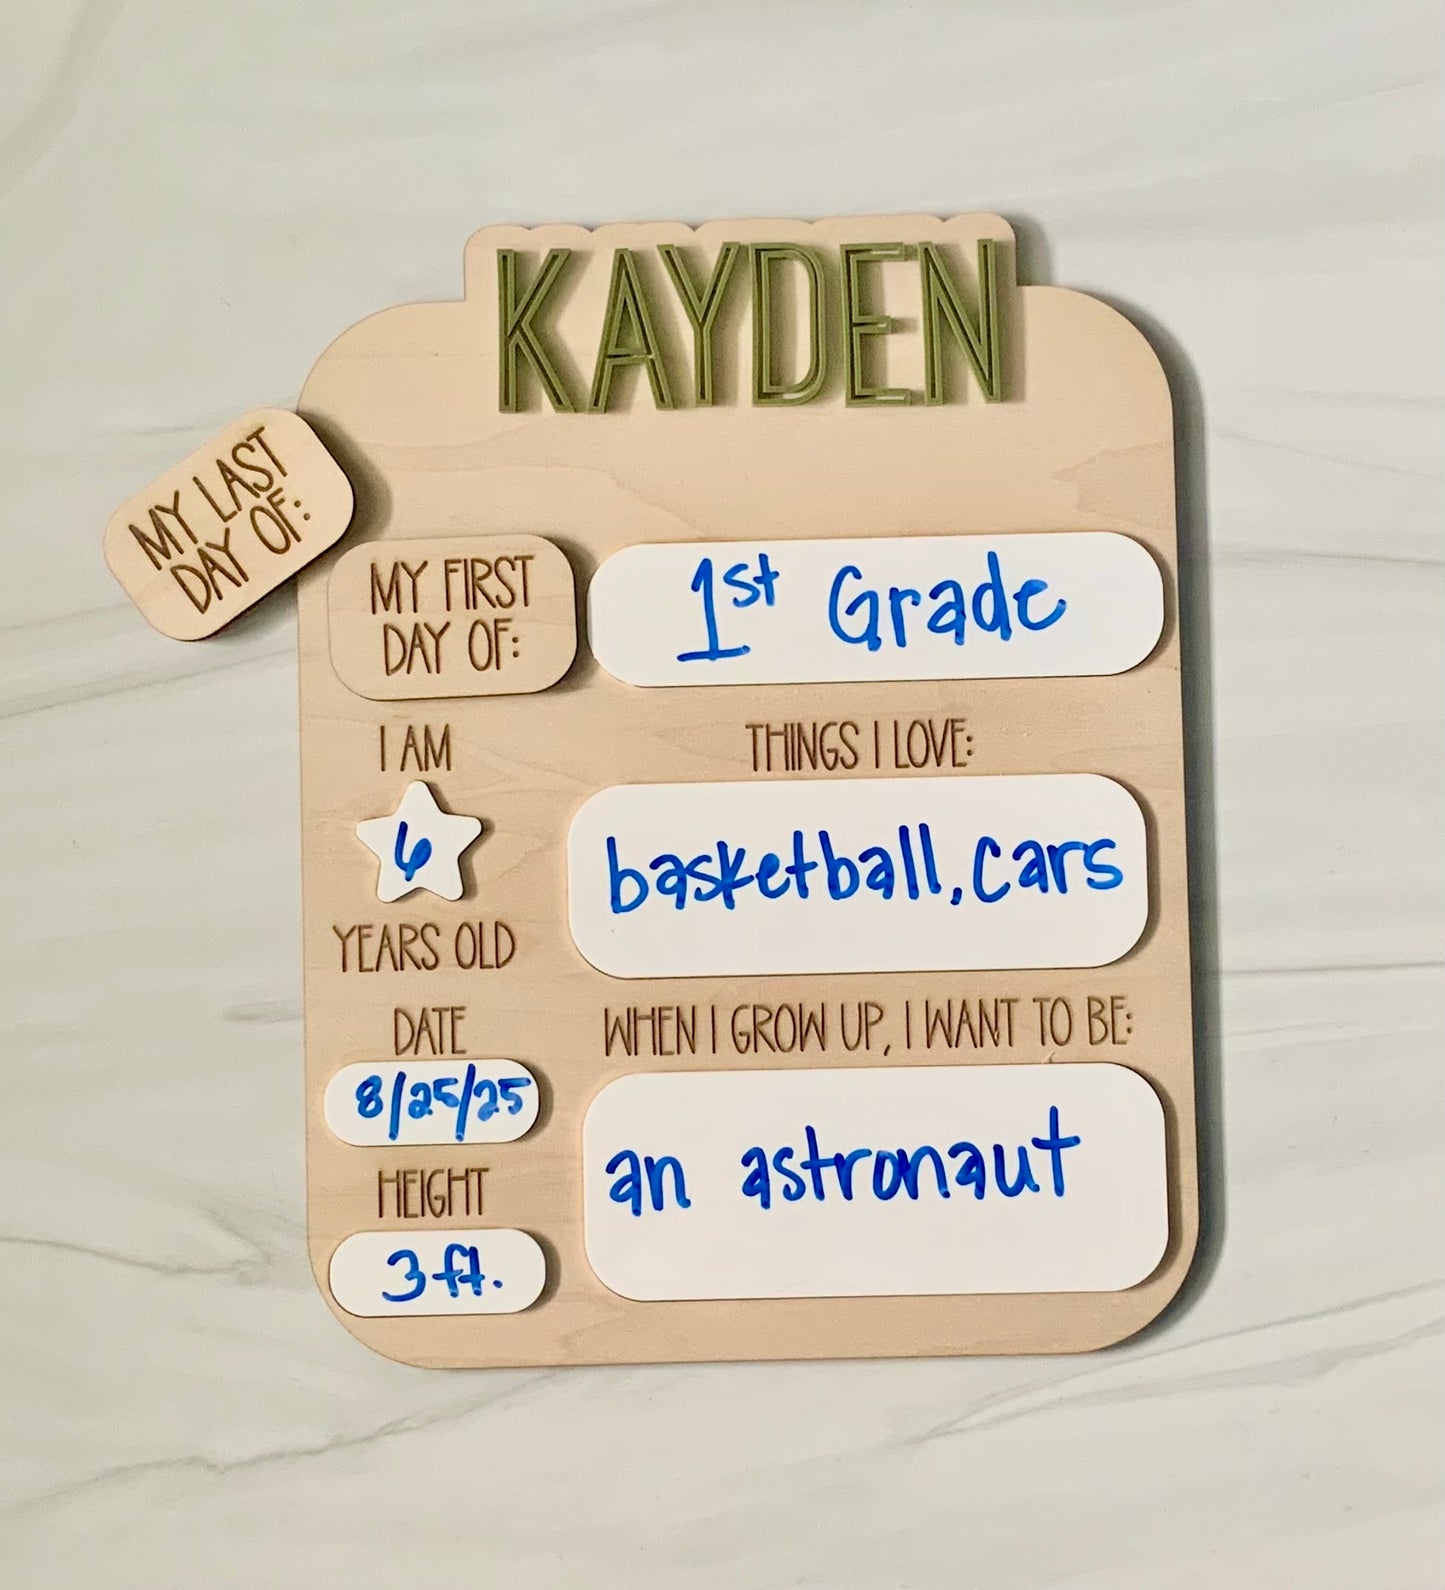 KAYDEN
MY LAST
DAY OF:
MY FIRST
DAY OF:
1st Grade
I AM
6
YEARS OLD
THINGS I LOVE:
basketball, cars
DATE
8/25/25
WHEN I GROW UP, I WANT TO BE:
an astronaut
HEIGHT
3 ft.